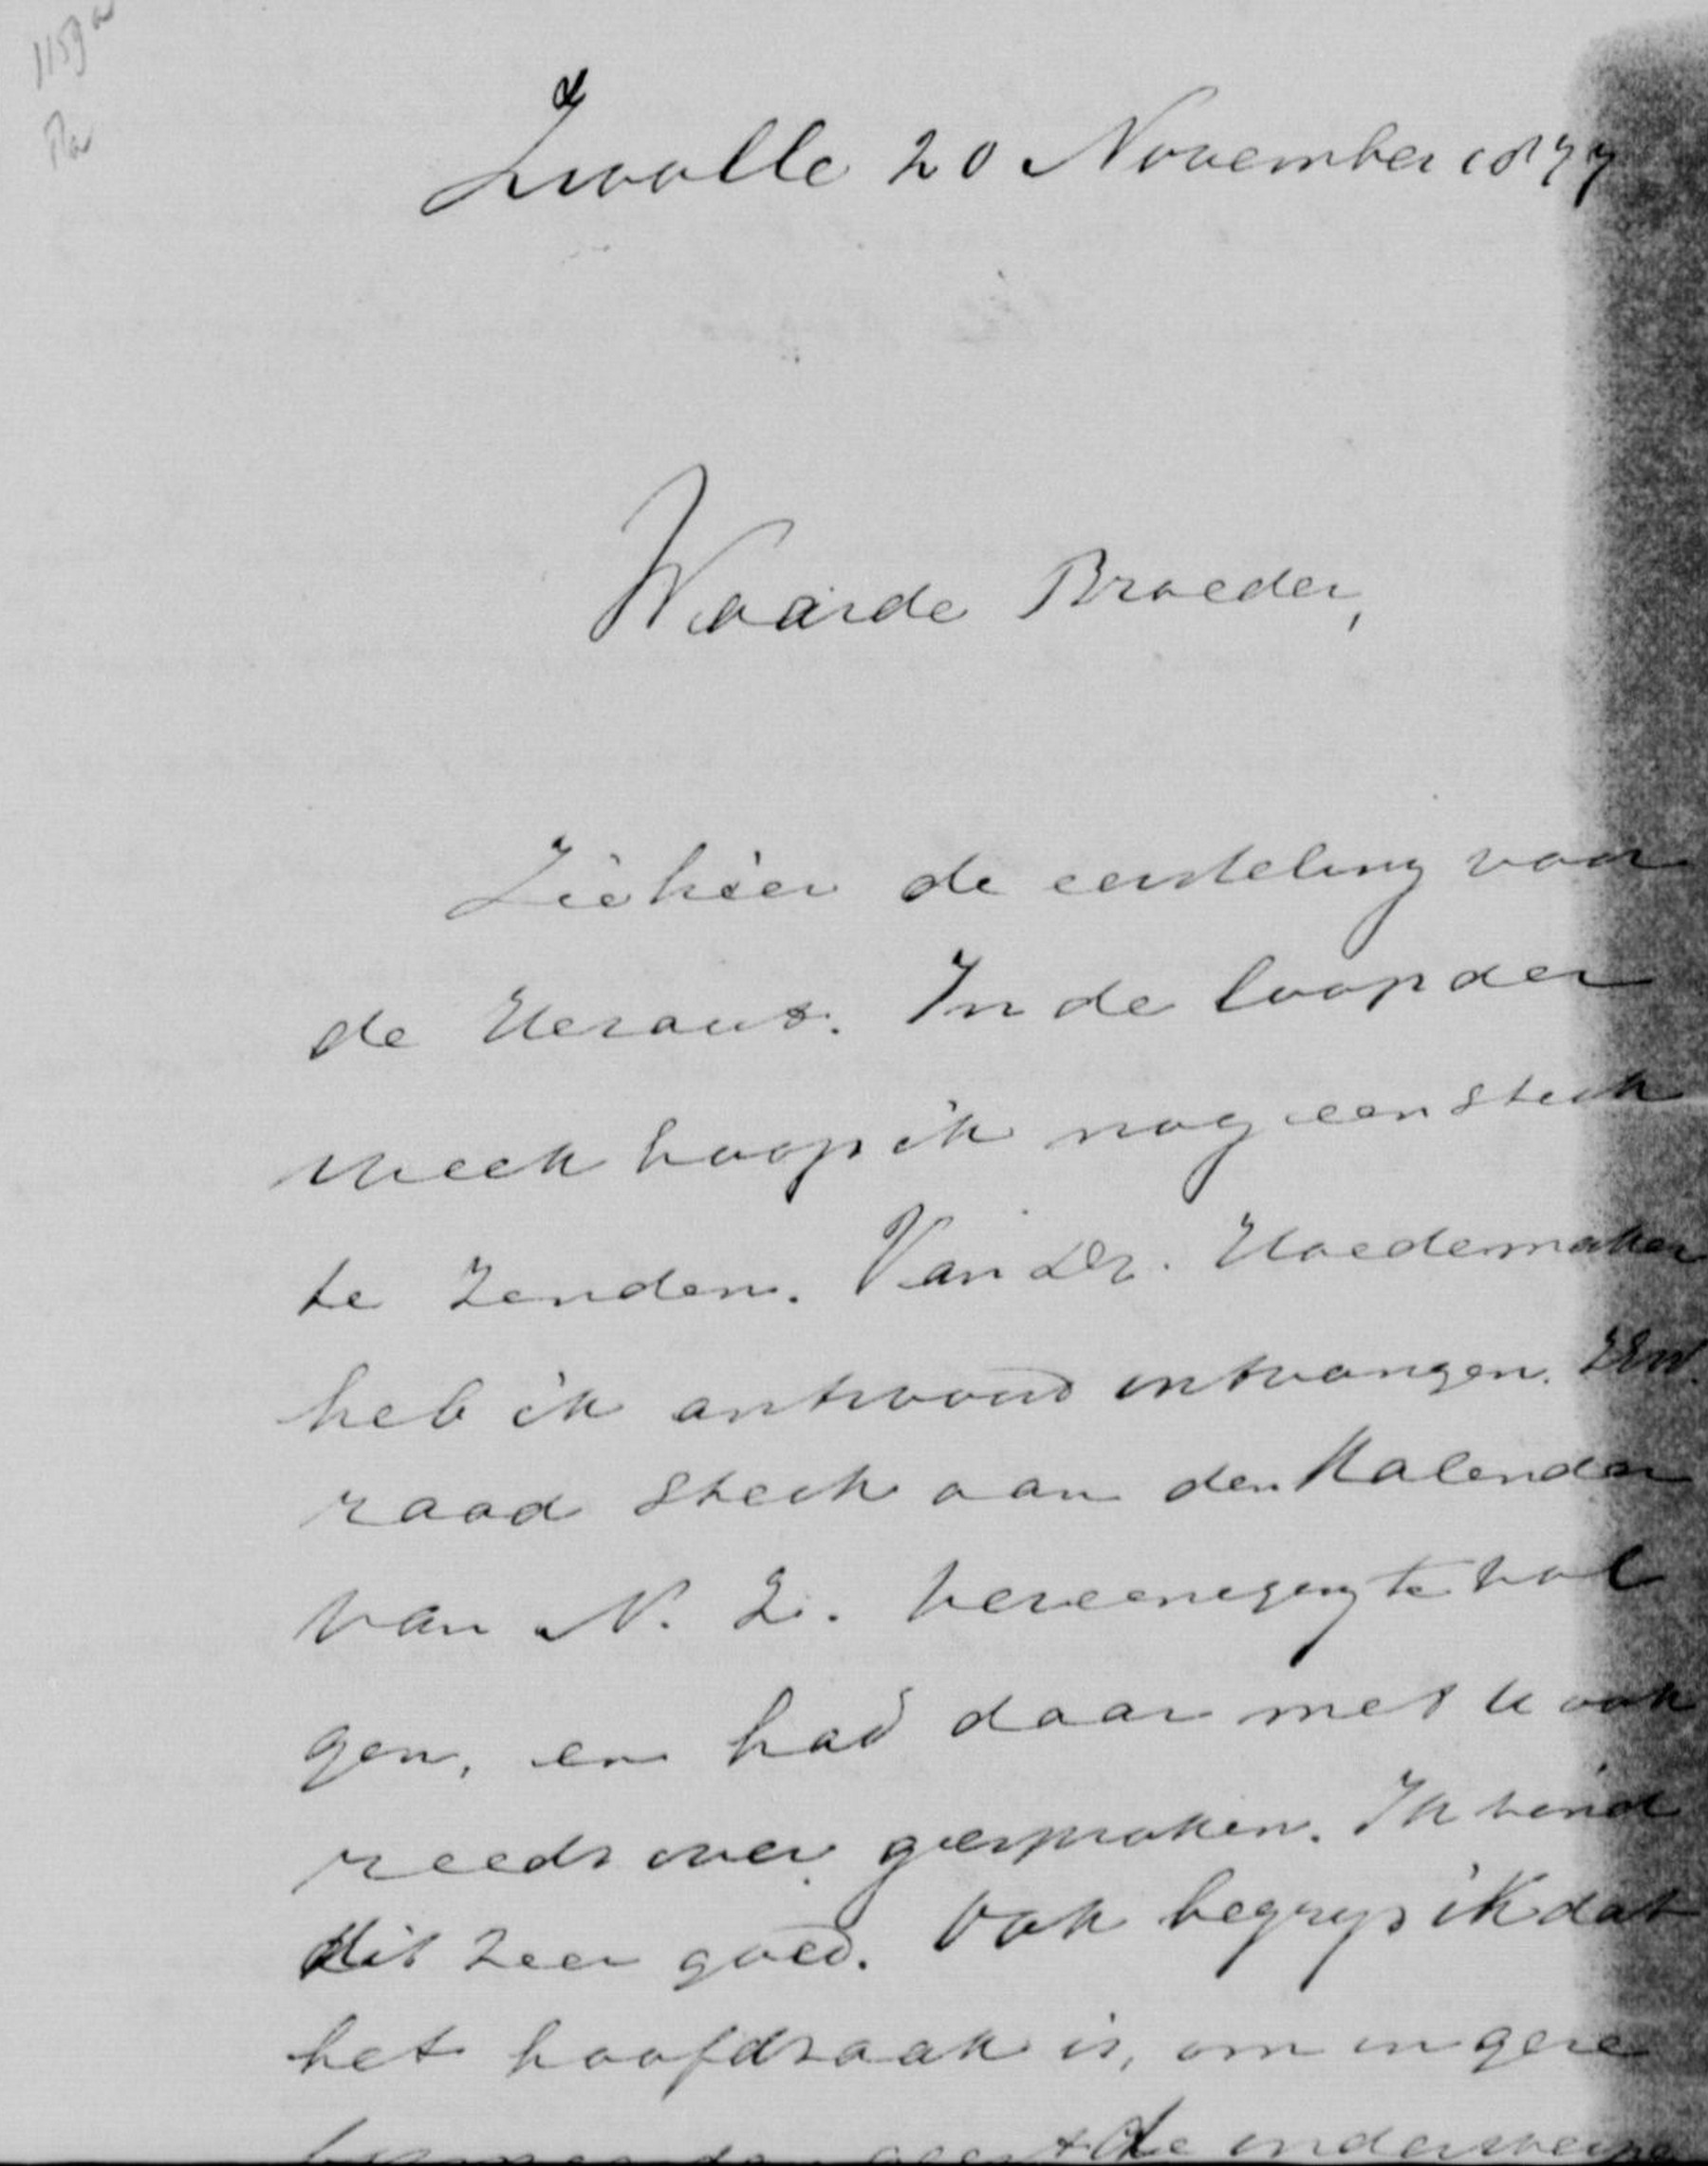 1159a
Zwolle 20 November 1877
Waarde Broeder,
Ziehier de eersteling voor
de Heraut. In de loop der
week hoop ik nog een stuk
te zenden. Van Dr. Hoedemaker
heb ik antwoord ontvangen. ZEw.
raad sterk aan den Kalender
van N. Z. vereeniging te vol
gen, en had daar met u ook
reeds over gesproken. Ik vind
dit zeer goed. Ook begrijp ik dat
het hoofdzaak is, om in gere
de onderwerpen